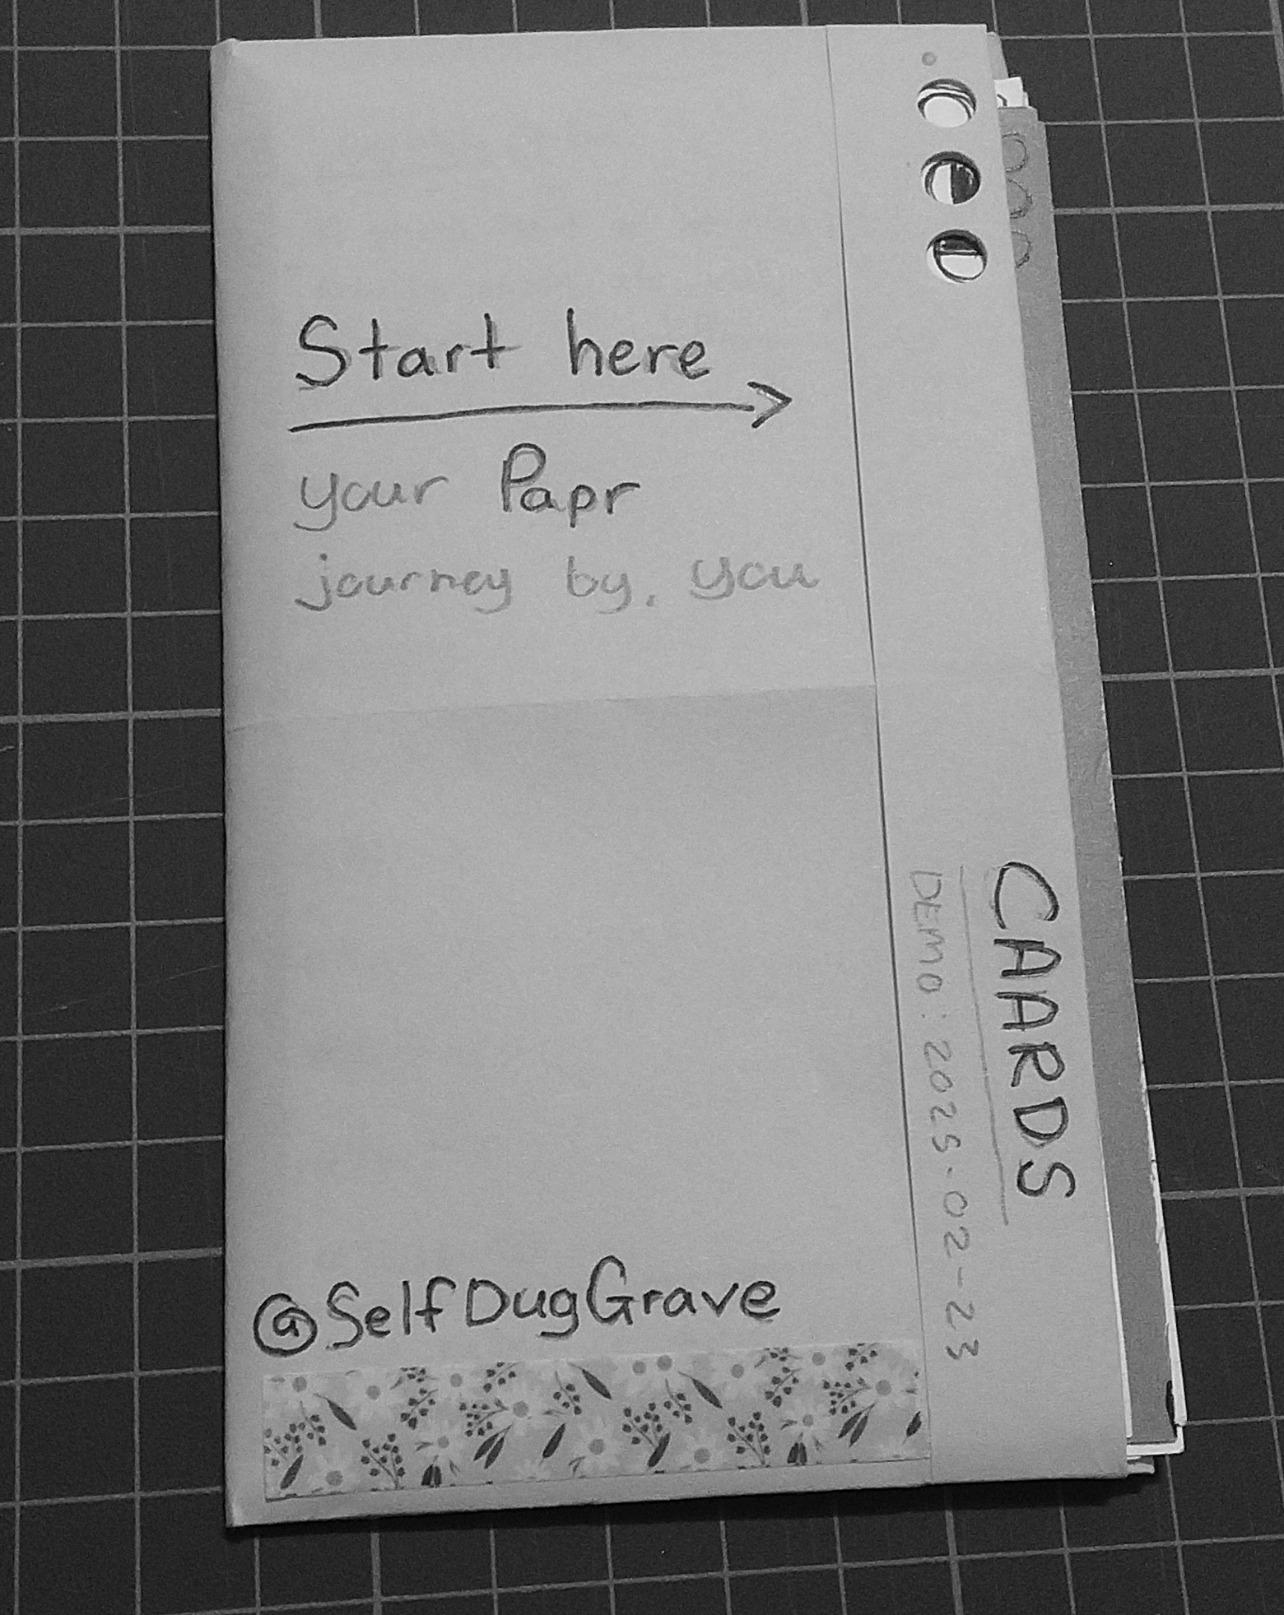 Start here
your Papr
journey by, you
@SelfDugGrave
CAARDS
DEMO: 2025-02-23